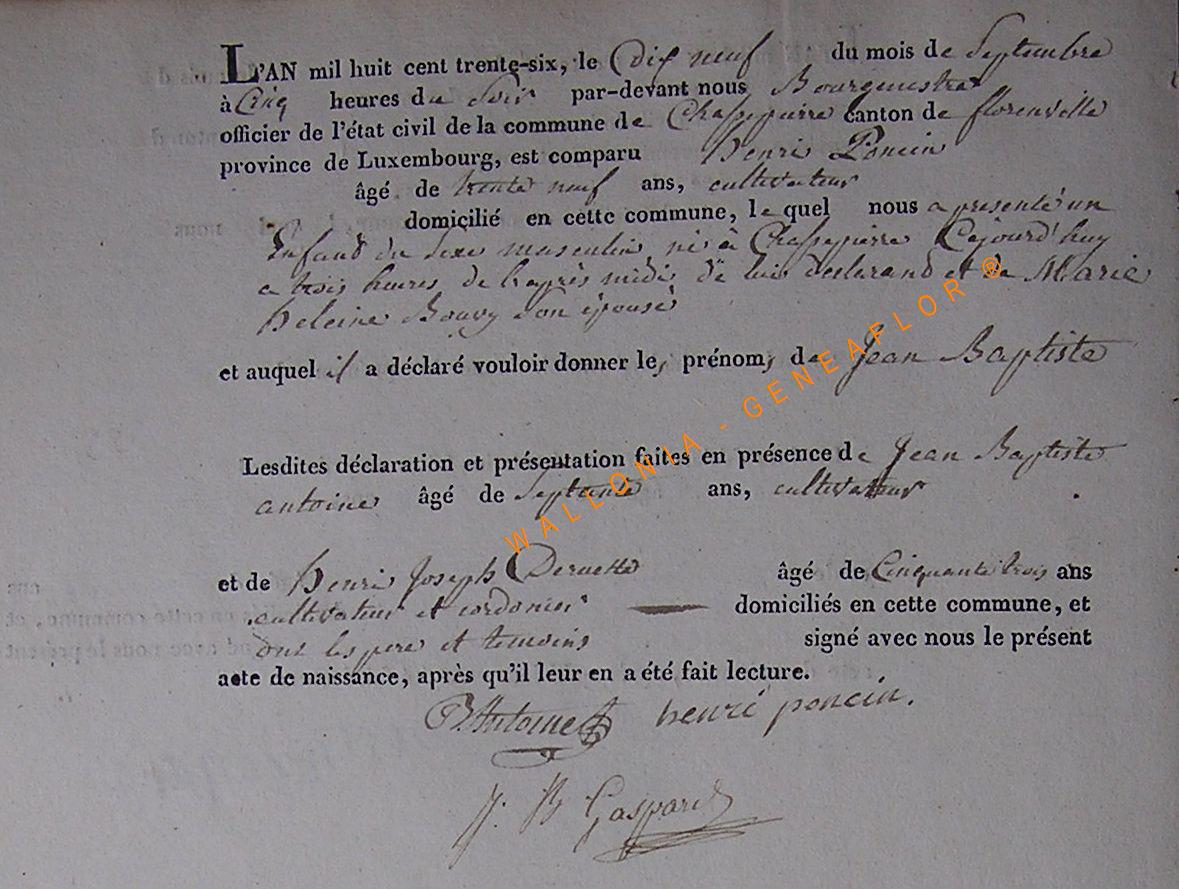 L'AN mil huit cent trente-six, le Dix neuf du mois de Septembre
à Cinq heures du Soir par-devant nous Bourguestre
officier de l'état civil de la commune de Chassepierre canton de florenville
province de Luxembourg, est comparu henri Poncin
âgé de trente neuf ans, cultivateur
domicilié en cette commune, le quel nous a presenté un
Enfant du Sexe masculin né à Chassepierre Cejourd'huy
a trois heures de l'après midi, de lui declarand et de Marie
heleine Bouvy son épouse
et auquel il a déclaré vouloir donner le, prénom, de Jean Baptiste
Lesdites déclaration et présentation faites en présence de Jean Baptiste
antoine âgé de Septante ans, cultivateur
et de henri Joseph âgé de Cinquante trois ans
cultivateur et cordonier domiciliés en cette commune, et
ont les pere et temoins signé avec nous le présent
acte de naissance, après qu'il leur en a été fait lecture.
Antoine henri poncin.
J. B Gaspard
WALLONIA - GENEAFLOR ®